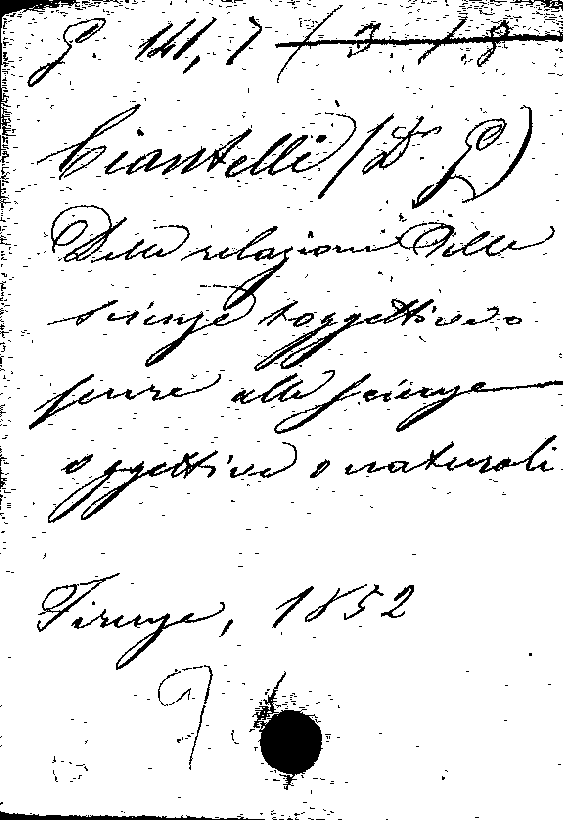 G. 141, 7 / 3. 1. 8
Ciantelli (Dr. G)
Delle relazioni delle
scienze soggettive o
pure alle scienze
oggettive o naturali
Firenze, 1852